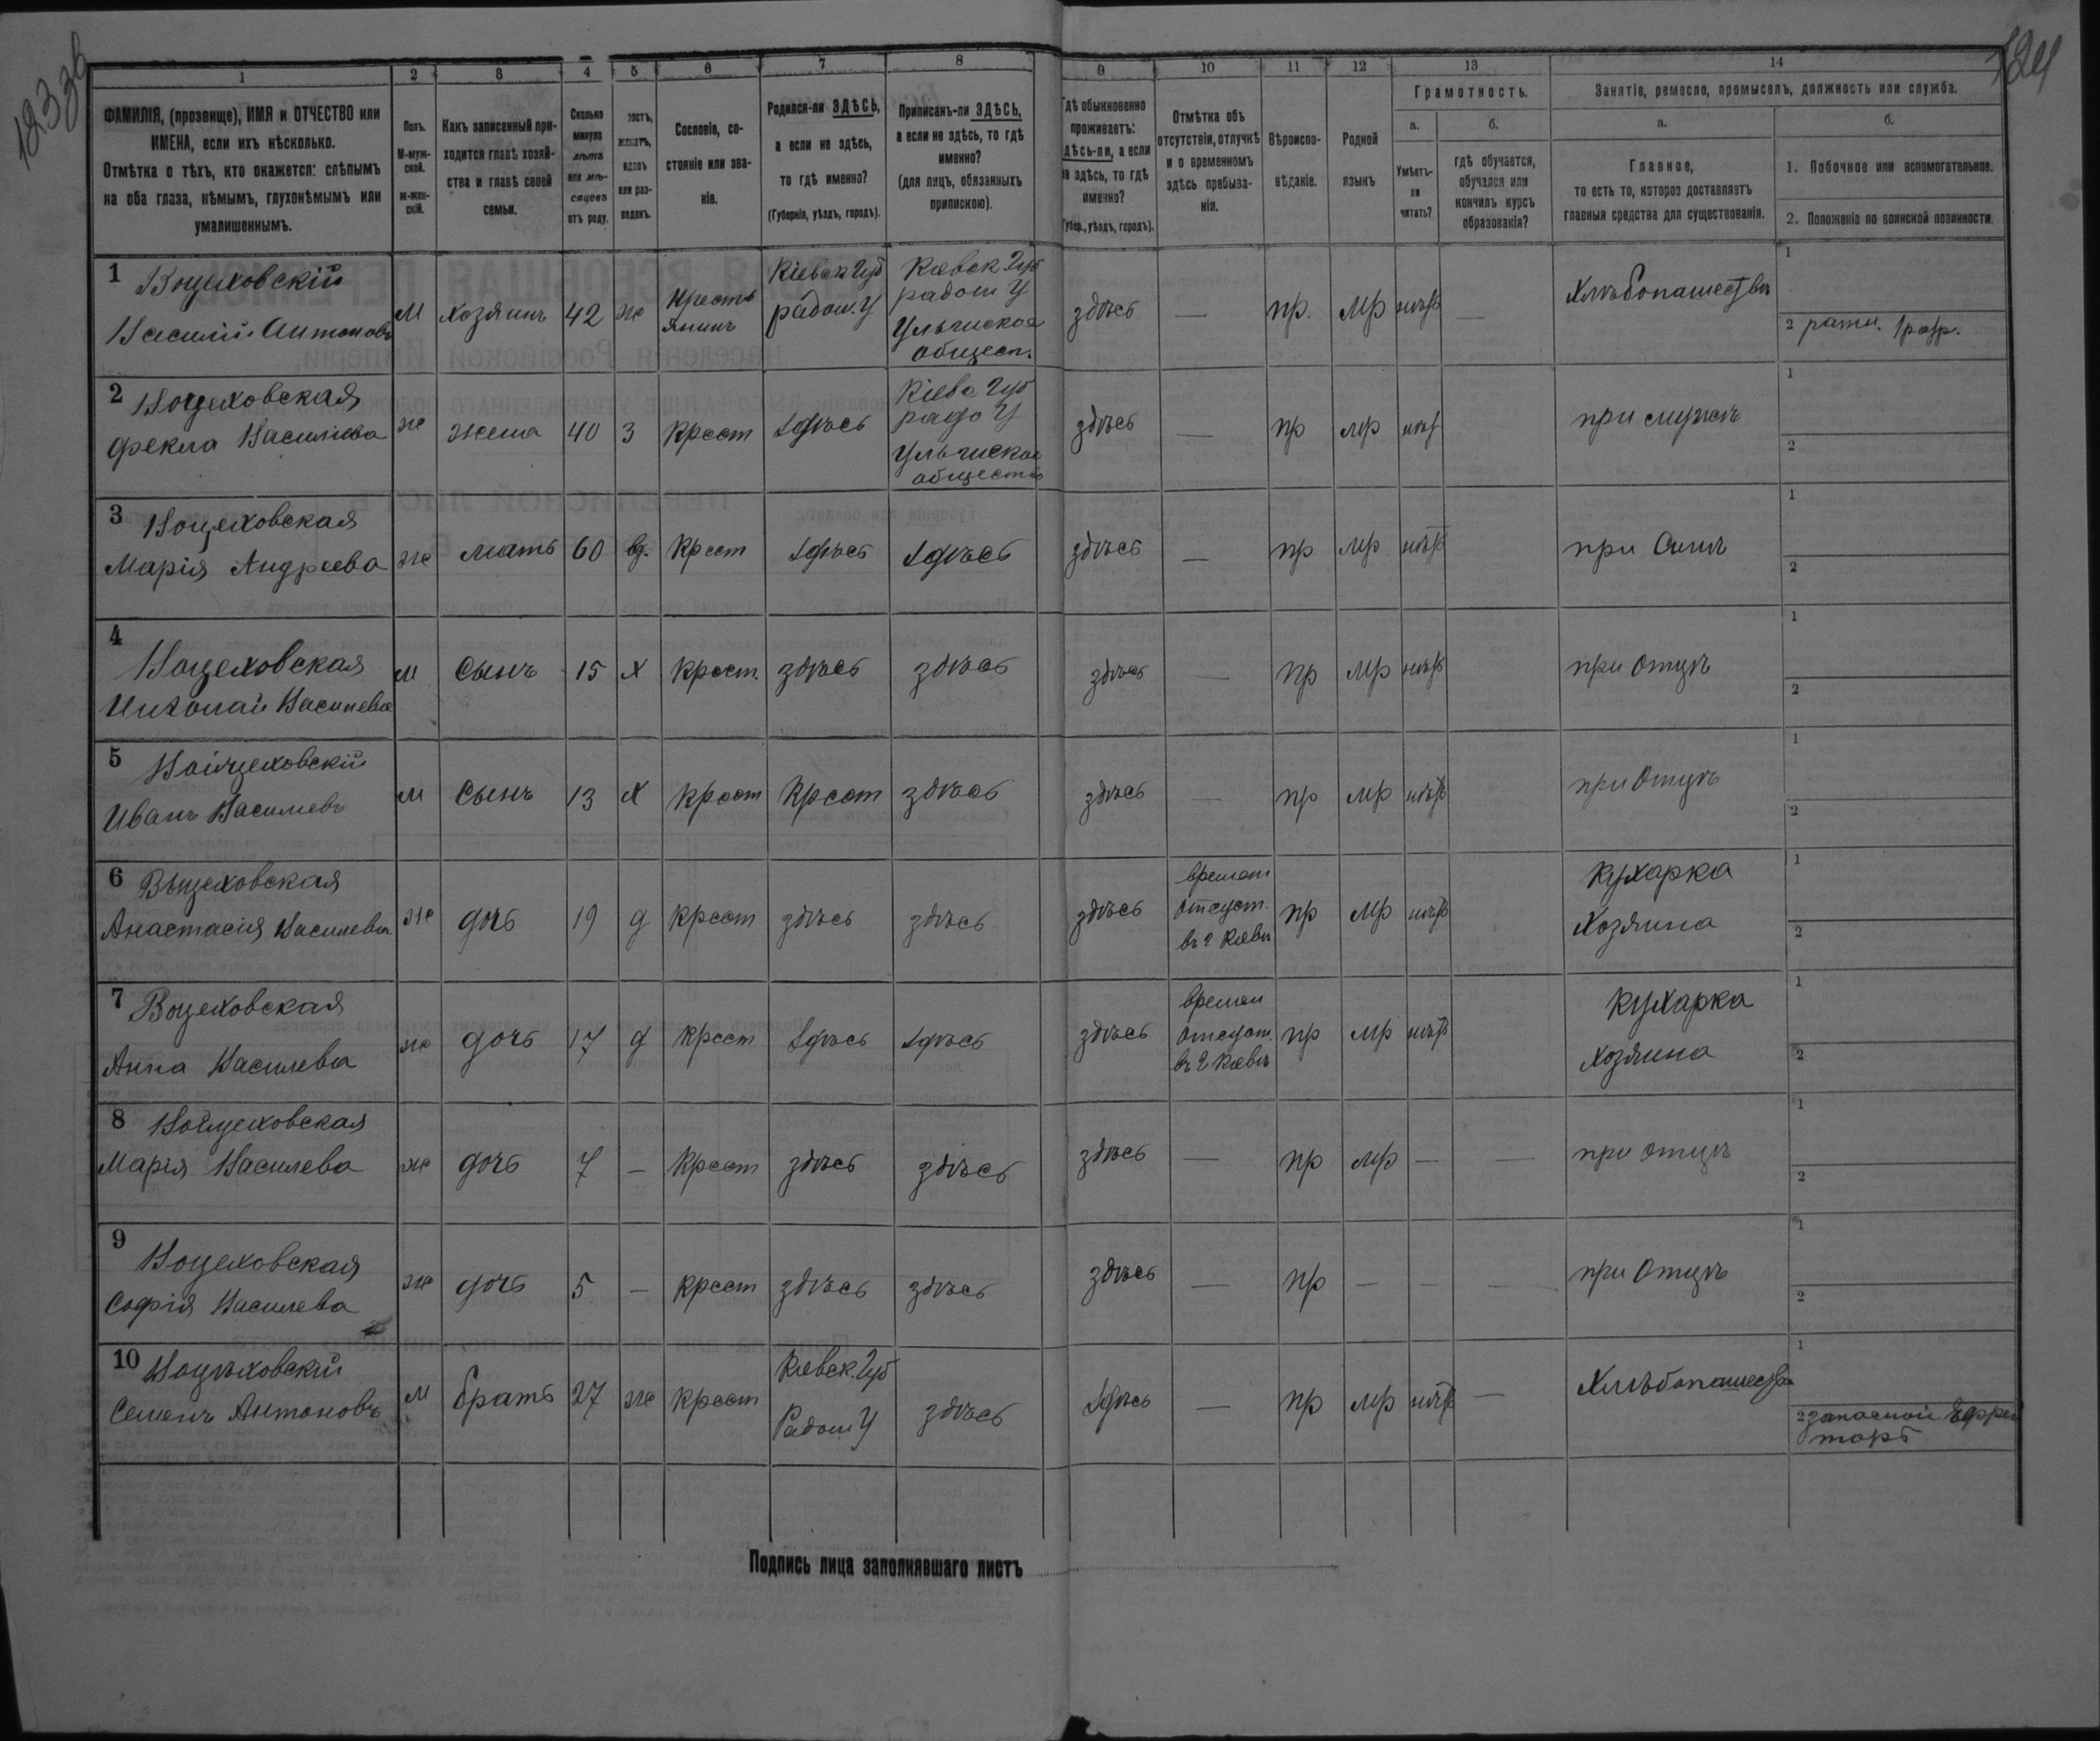 1833в
124
1 2 3 4 5 6 7 8 9 10 11 12 13 14
ФАМИЛІЯ, (прозвище), ИМЯ и ОТЧЕСТВО или ИМЕНА, если ихъ нѣсколько.
Отмѣтка о тѣхъ, кто окажется: слѣпымъ на оба глаза, нѣмымъ, глухонѣмымъ или умалишеннымъ.
Полъ. М-муж-ской. ж-жен-скій.
Какъ записанный при-ходится главѣ хозяй-ства и главѣ своей семьи.
Сколько минуло лѣтъ или мѣ-сяцевъ отъ роду.
ростъ, женатъ, вдовъ или раз-веденъ.
Сословіе, со-стояніе или зва-ніе.
Родился-ли ЗДѢСЬ, а если не здѣсь, то гдѣ именно? (Губернія, уѣздъ, городъ).
Приписанъ-ли ЗДѢСЬ, а если не здѣсь, то гдѣ именно? (для лицъ, обязанныхъ припискою).
Гдѣ обыкновенно проживаетъ: здѣсь-ли, а если не здѣсь, то гдѣ именно? (Губер., уѣздъ, городъ).
Отмѣтка объ отсутствіи, отлучкѣ и о временномъ здѣсь пребыва-ніи.
Вѣроиспо-вѣданіе.
Родной языкъ
Грамотность.
а. Умѣетъ-ли читать?
б. гдѣ обучается, обучался или кончилъ курсъ образованія?
Занятіе, ремесло, промыселъ, должность или служба.
а. Главное, то есть то, которое доставляетъ главныя средства для существованія.
б.
1. Побочное или вспомогательное.
2. Положеніе по воинской повинности.
1 Воцеховскій Василій Антоновъ М хозяинъ 42 же Крестьянинъ Кіевск Губ радом. У Кіевск Губ радом У Ульгиское общест. здѣсь — пр. Мр нѣтъ — Хлѣбопашество 1 2 ратн. 1 разр.
2 Воцеховская Фекла Василіева же жена 40 З Крест здѣсь Кіевс Губ радо У Ульгиское общество здѣсь — пр мр нѣт при мужѣ 1 2
3 Воцеховская Марія Андреева же мать 60 вд. Крест здѣсь здѣсь здѣсь — пр мр нѣтъ при Сынѣ 1 2
4 Воцеховская Николай Василева м Сынъ 15 Х Крест. здѣсь здѣсь здѣсь — пр мр нѣтъ при Отцѣ 1 2
5 Воицеховскій Иванъ Василевъ м Сынъ 13 Х Крест Крест здѣсь здѣсь — пр мр нѣтъ при Отцѣ 1 2
6 Воцеховская Анастасія Василева же дочь 19 д Крест здѣсь здѣсь здѣсь времен Отсуст. въ г Кіевѣ пр мр нѣтъ Кухарка Хозяина 1 2
7 Воцеховская Анна Василева же дочь 17 д Крест здѣсь здѣсь здѣсь времен Отсуст. въ г Кіевѣ пр мр нѣтъ Кухарка Хозяина 1 2
8 Воицеховская Марія Василева же дочь 7 — Крест здѣсь здѣсь здѣсь — пр мр — — при отцѣ 1 2
9 Воцеховская Софія Василева же дочь 5 — Крест здѣсь здѣсь здѣсь — пр — — — при Отцѣ 1 2
10 Воцѣховскій Семенъ Антоновъ М братъ 27 же Крест Кіевск. Губ Радом У здѣсь здѣсь — пр мр нѣтъ — Хлѣбопашество 1 2 запасной Ефрейторъ
Подпись лица заполнявшаго листъ